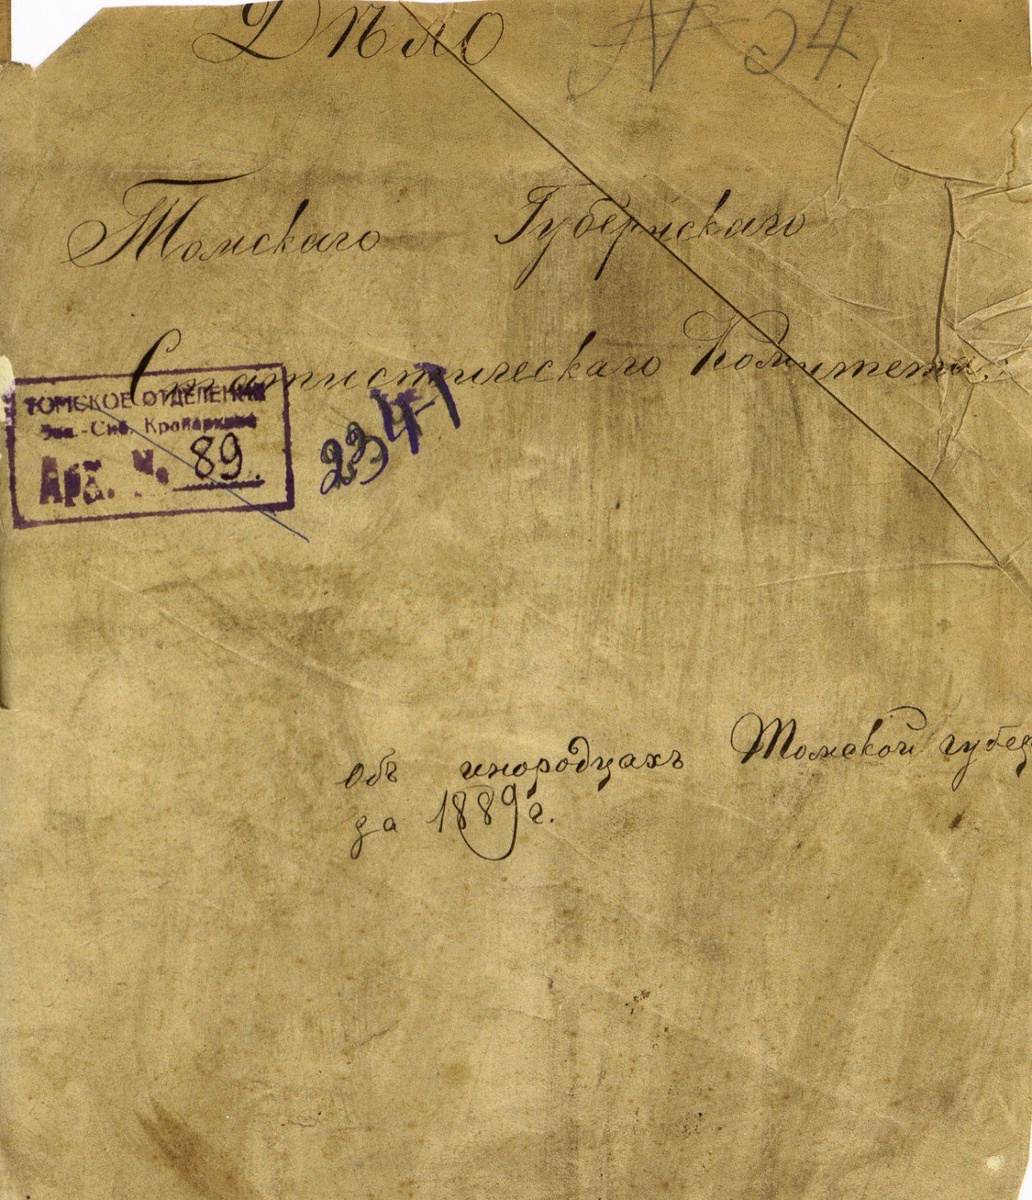 Дѣло № 54
Томскаго Губернскаго
Статистическаго Комитета.
ТОМСКОЕ ОТДЕЛЕНИЕ
Зап.-Сиб. Крайархива
Арх. №. 89.
234-1
объ инородцахъ Томской губер
за 1889 г.